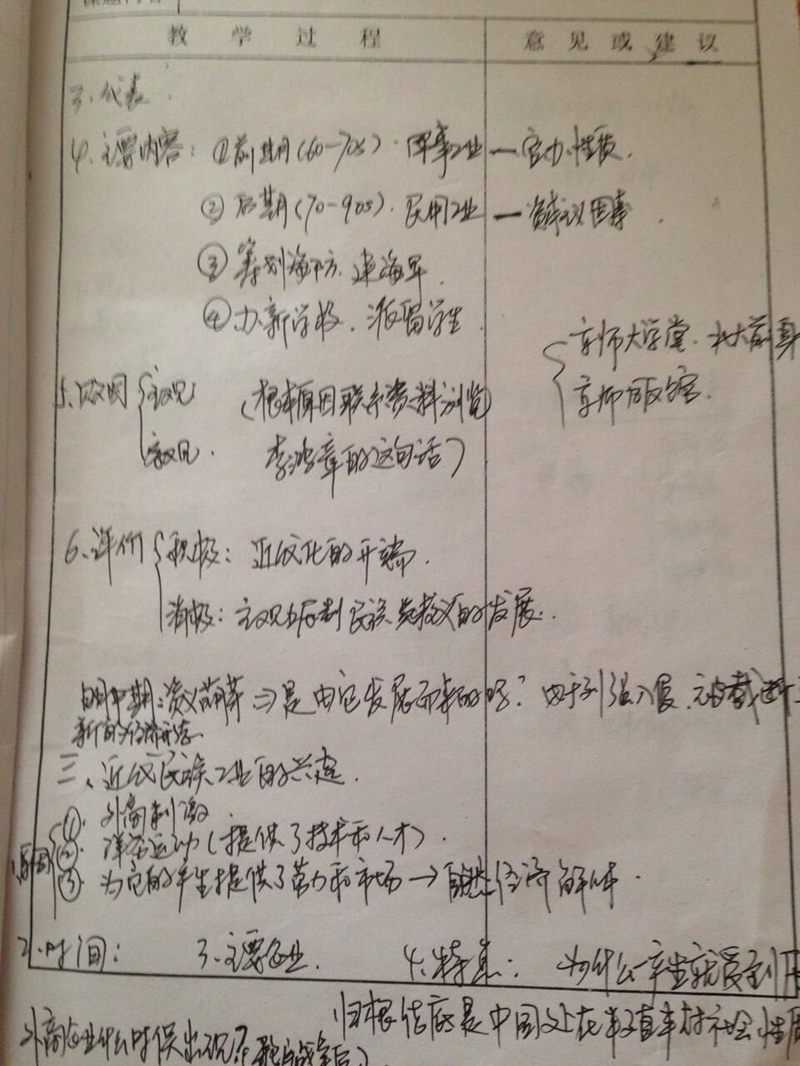 教学过程 意见或建议
3、代表.
4、主要内容: ①前期(60—70s)·军事工业—官办性质.
②后期(70—90s)·民用工业—资本主义因素.
③筹划海防.建海军.
④办新学校.派留学生
京师大学堂.北大前身
京师同文馆.
5、败因 主观 (根本原因联系资料浏览
客观. 李鸿章的这句话)
6、评价 积极: 近代化的开端.
消极: 主观上压制民族资本主义的发展.
明中期:资义萌芽⇒是由它发展而来的吗? 由于列强入侵.
新的经济形态
三、近代民族工业的兴起.
1、原因 ①外商刺激
② 洋务运动(提供了技术和人才).
③ 为它的产生提供了劳力和市场→自然经济解体.
2、时间: 3、主要企业. 4、特点: 为什么一产生就受到
归根结底是中国处在半殖半封社会性质
外商企业什么时候出现? 鸦片战争后)